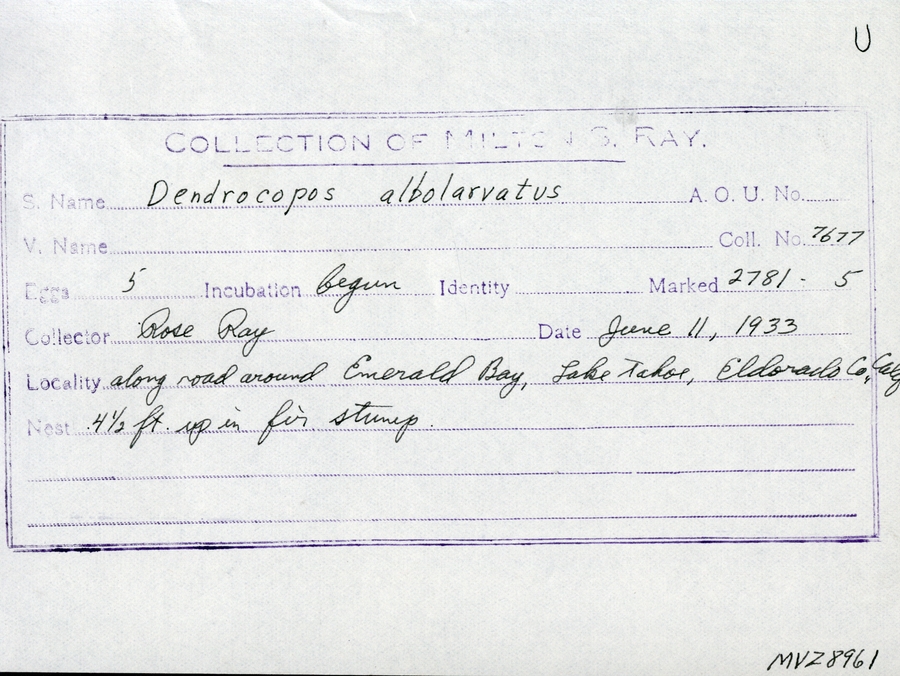 U
COLLECTION OF MILTON S. RAY.
S. Name Dendrocopos albolarvatus A. O. U. No.
V. Name Coll. No. 7677
Eggs 5 Incubation begun Identity Marked 2781 - 5
Collector Rose Ray Date June 11, 1933
Locality along road around Emerald Bay, Lake Tahoe, Eldorado Co., Calif
Nest 4½ ft. up in fir stump.
MVZ 8961